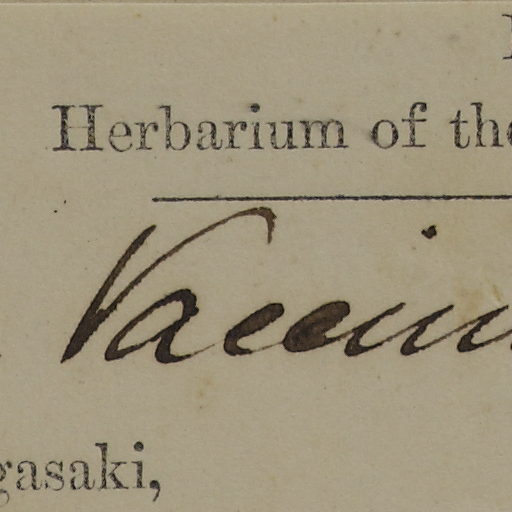 Herbarium of the
Vaccin
gasaki,